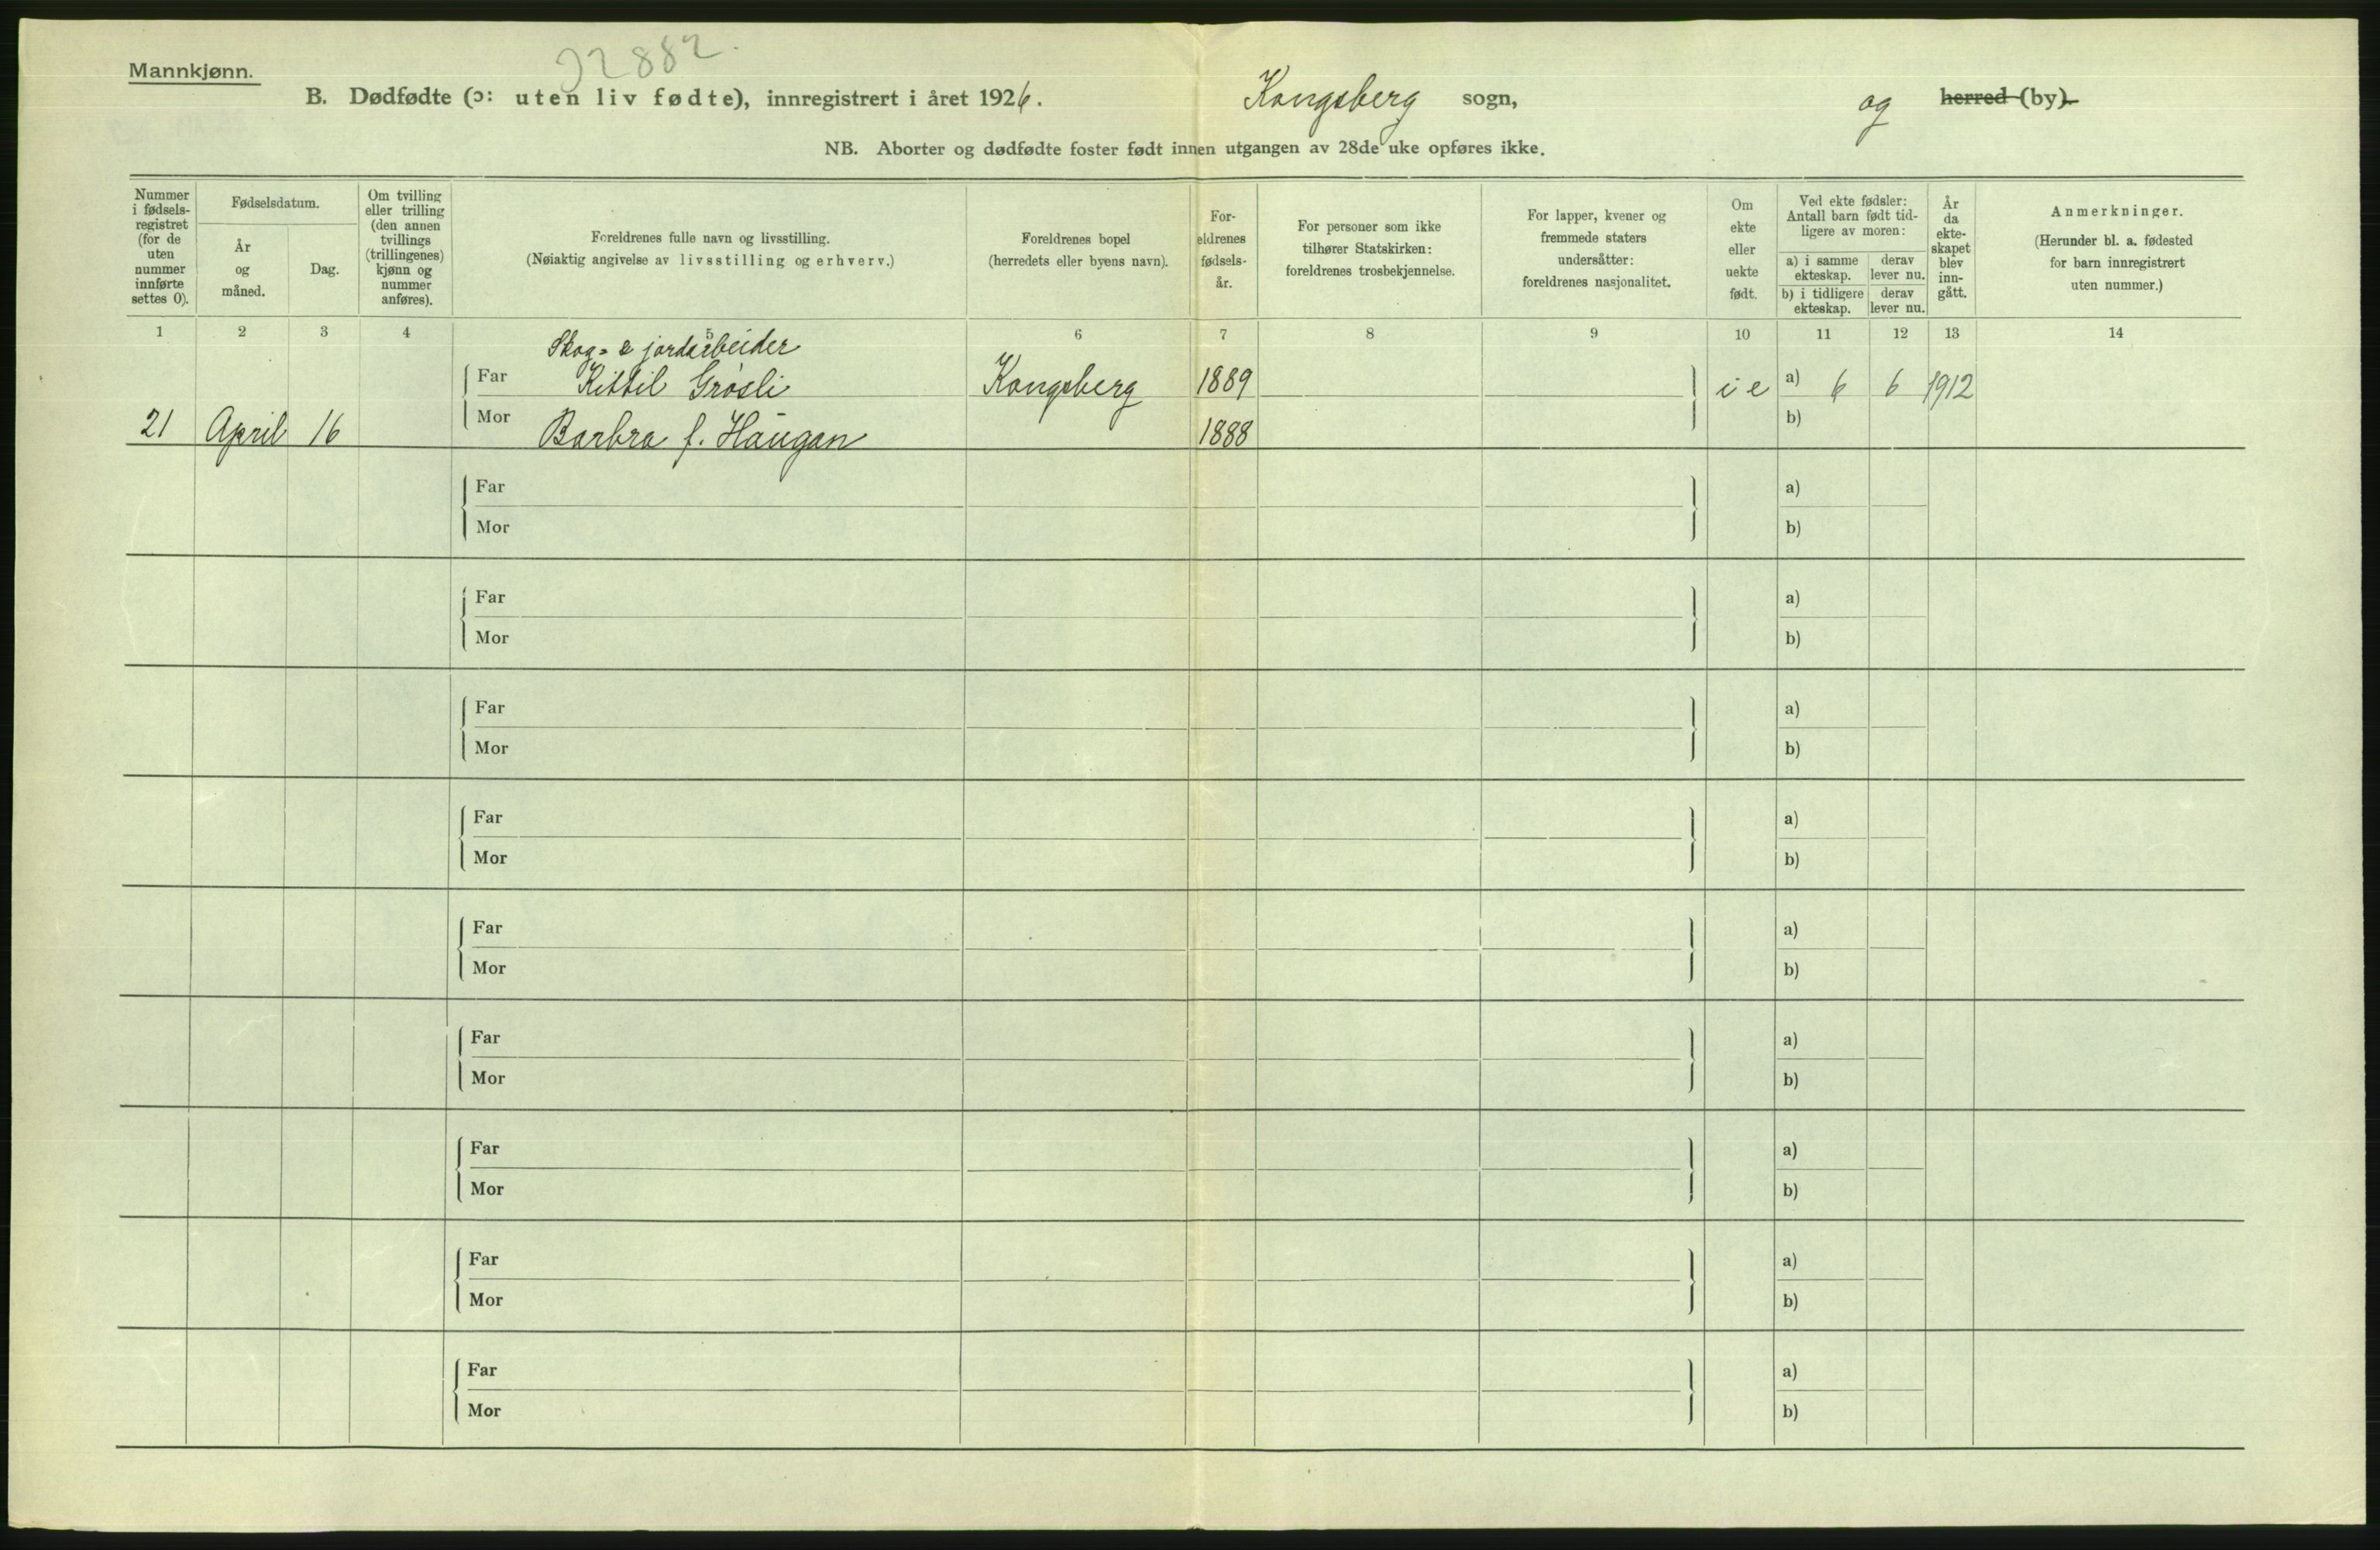 22882.
Mannkjønn.
B. Dødfødte (ɔ: uten liv fødte), innregistrert i året 1926. Kongsberg sogn, og herred (by).
NB. Aborter og dødfødte foster født innen utgangen av 28de uke opføres ikke.
Nummer i fødselsregistret (for de uten nummer innførte settes 0).
Fødselsdatum.
År og måned.
Dag.
Om tvilling eller trilling (den annen tvillings (trillingenes) kjønn og nummer anføres).
Foreldrenes fulle navn og livsstilling.
(Nøiaktig angivelse av livsstilling og erhverv.)
Foreldrenes bopel
(herredets eller byens navn).
Foreldrenes fødselsår.
For personer som ikke tilhører Statskirken: foreldrenes trosbekjennelse.
For lapper, kvener og fremmede staters undersåtter: foreldrenes nasjonalitet.
Om ekte eller uekte født.
Ved ekte fødsler: Antall barn født tidligere av moren:
a) i samme ekteskap. derav lever nu.
b) i tidligere ekteskap. derav lever nu.
År da ekteskapet blev inngått.
Anmerkninger.
(Herunder bl. a. fødested for barn innregistrert uten nummer.)
1 2 3 4 5 6 7 8 9 10 11 12 13 14
Skog- & jordarbeider
Far Kittil Grøsli Kongsberg 1889 i e a) 6 6 1912
21 April 16 Mor Barbra f. Haugan 1888 b)
Far a)
Mor b)
Far a)
Mor b)
Far a)
Mor b)
Far a)
Mor b)
Far a)
Mor b)
Far a)
Mor b)
Far a)
Mor b)
Far a)
Mor b)
Far a)
Mor b)